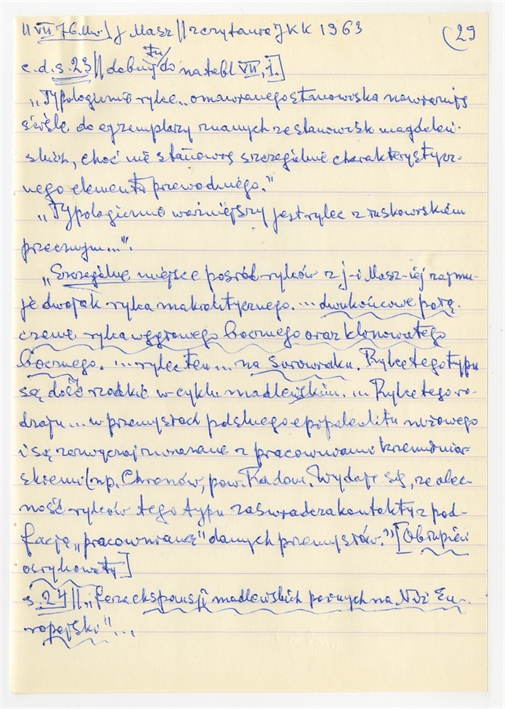 || VII 76 Mu.] J Masz || zczytane JKK 1963 (29
c.d. s. 23 || dobuj tu do na tabl VII, 1.]
"Typologicznie rylce.. omawianego stanowiska nawiązują
ściśle do egzemplarzy znanych ze stanowisk magdaleń-
skich, choć nie stanowią szczególnie charakterystycz-
nego elementu przewodniego."
"Typologicznie ważniejszy jest rylec z łuskowiskiem
poprzecznym..."
"Szczególne miejsce pośród rylców z j-i Masz-iej zajmu-
je dwojak rylca makrolitycznego. ... dwukońcowe połą-
czenie rylca węgłowego bocznego oraz klinowatego
bocznego. ... rylec ten ... na surowiaku. Rylce tego typu
są dość rzadkie w cyklu madleńskim. ... Rylce tego ro-
dzaju ... w przemysłach polskiego epipaleolitu niżowego
i są zazwyczaj związane z pracowniami krzemieniar-
skiemi (np. Chronów, pow. Radom. Wydaje się, że obec-
ność rylców tego typu zaświadcza kontakty z pod-
fację "pracownianą" danych przemysłów." [Obłupień
orylcowaty]
s. 24 || "faza ekspansji madleńskich późnych na Niż Eu-
ropejski"...